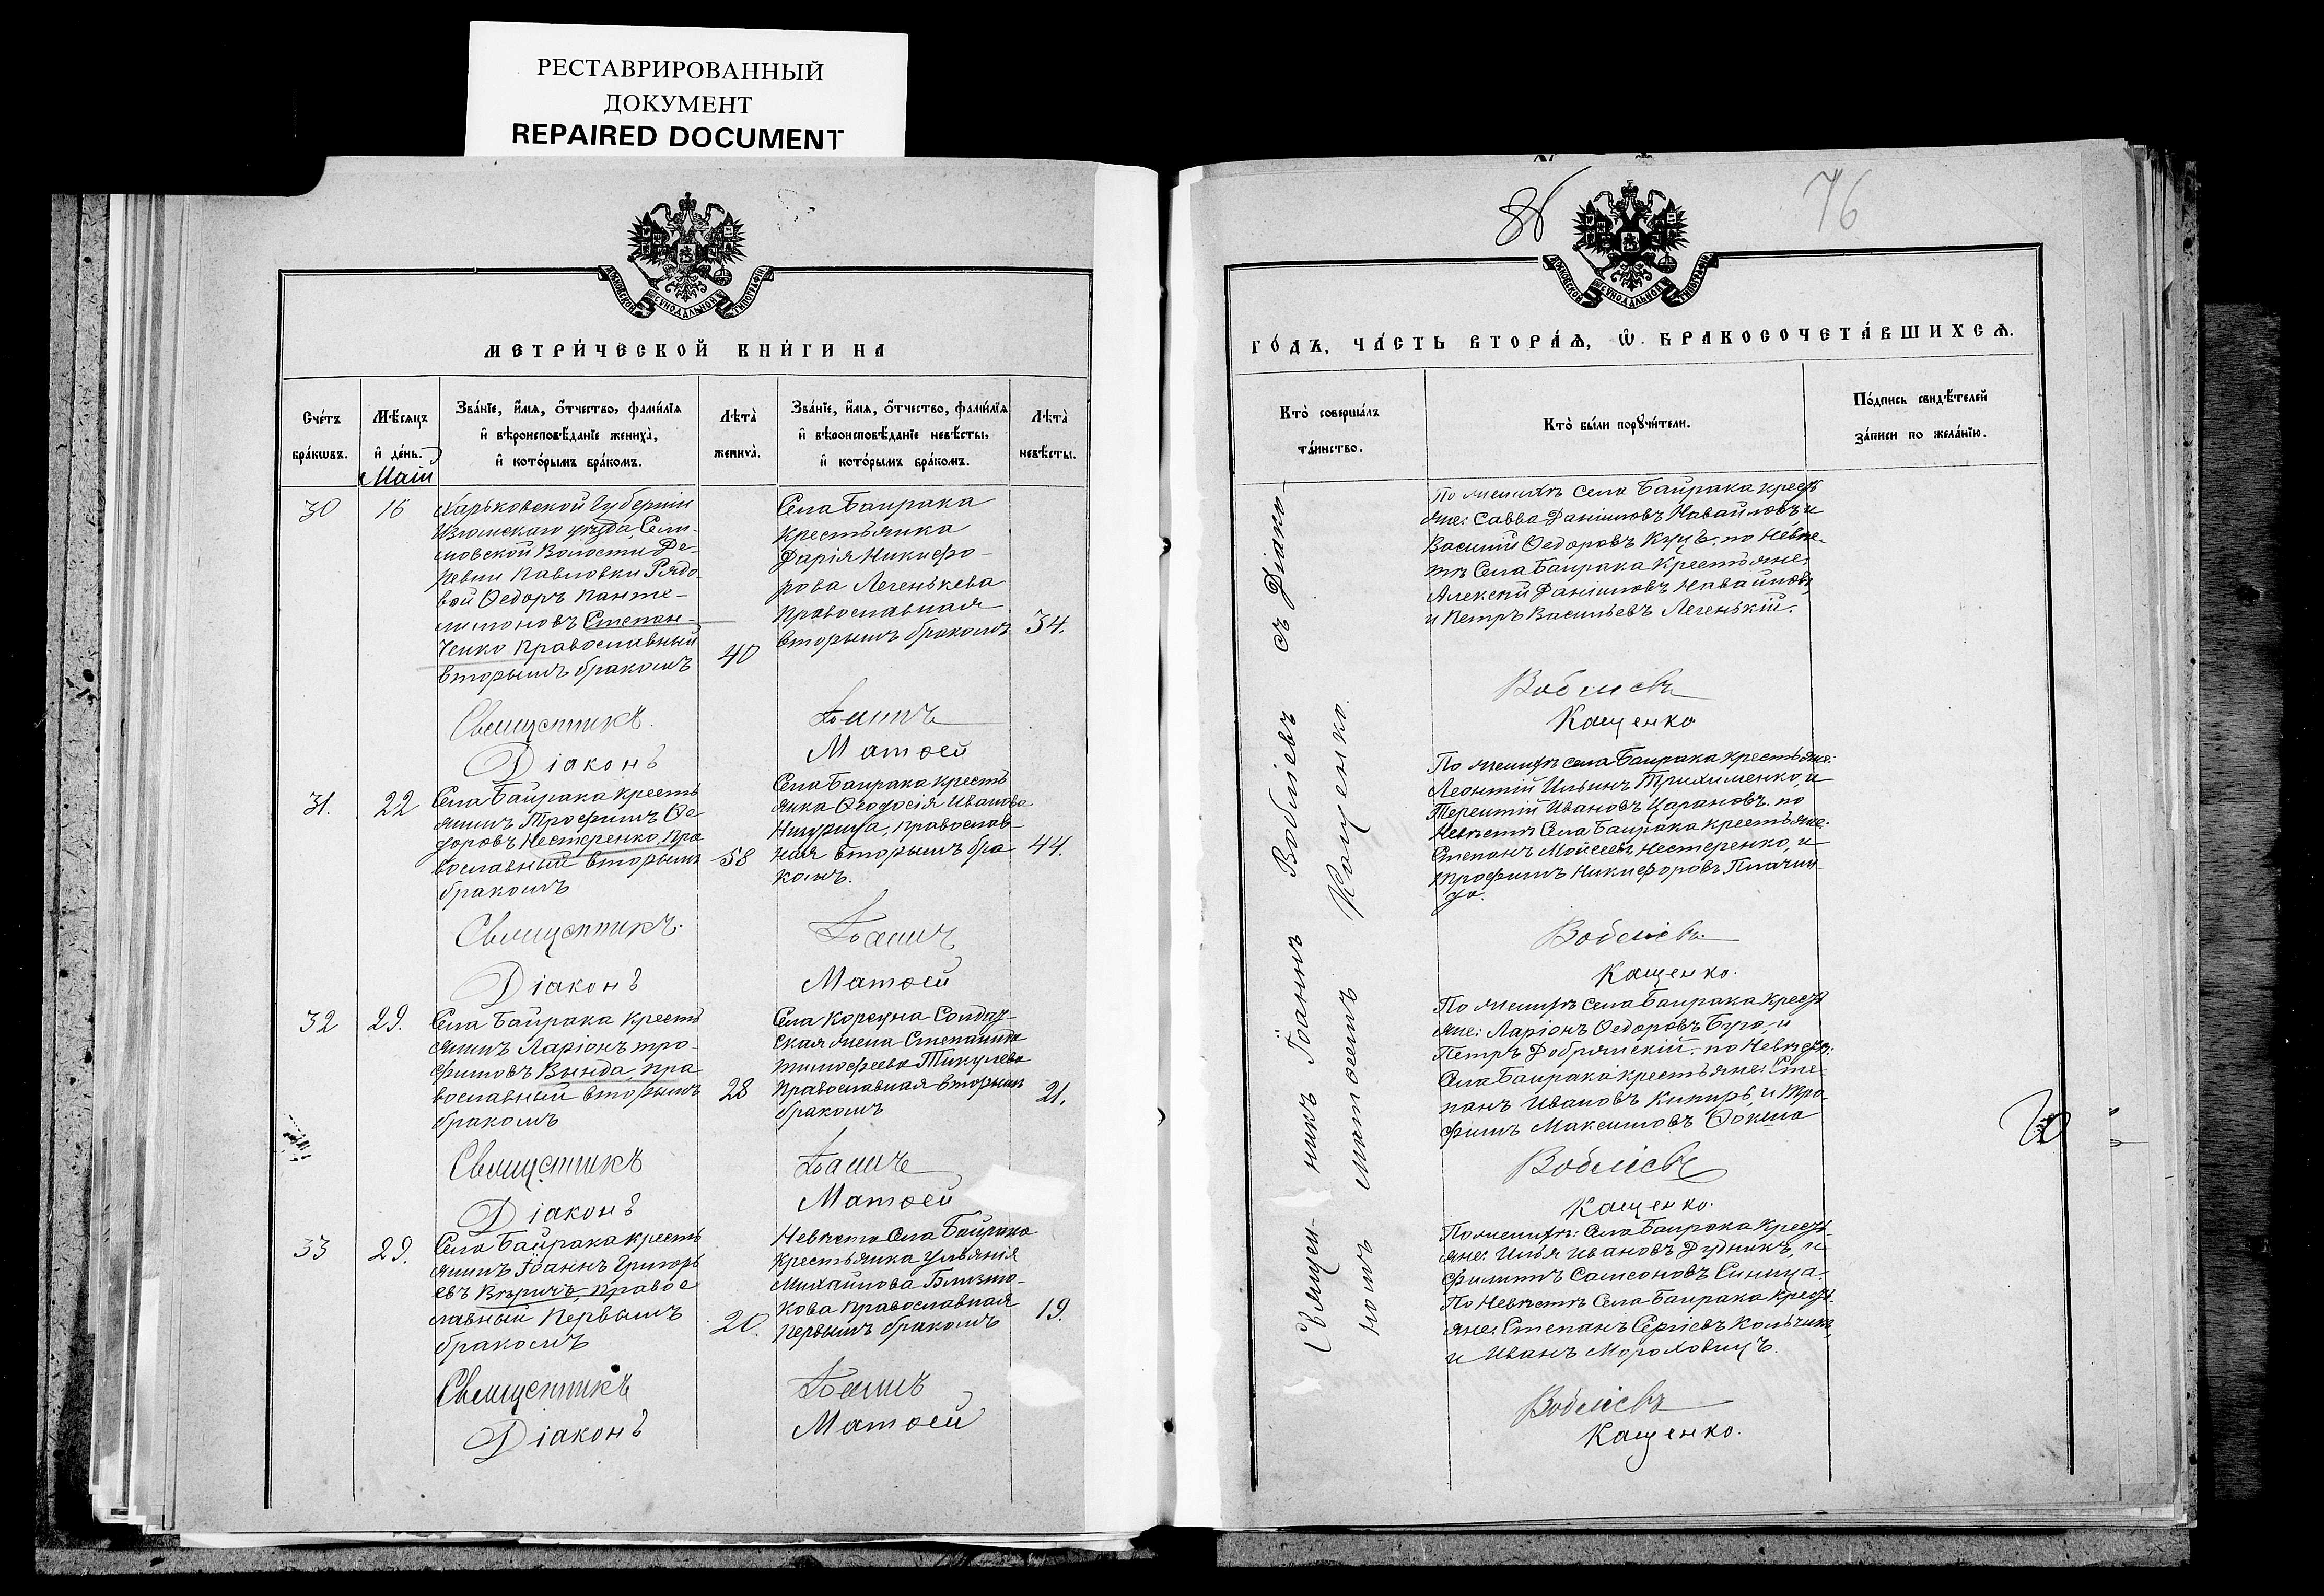 РЕСТАВРИРОВАННЫЙ
ДОКУМЕНТ
REPAIRED DOCUMENT
МОСКОВСКОЙ СѴНОДАЛЬНОЙ ТИПОГРАФІИ
МЕТРИ́ЧЕСКОЙ КНИ́ГИ НА
Сче́тъ
бра́кѡвъ.
Мѣ́сяцъ
и҆ де́нь.
Зва́нїе, и҆́мѧ, ѻ҆́тчество, фами́лїѧ
и҆ вѣроисповѣ́данїе жениха̀,
и҆ кото́рымъ бра́комъ.
Лѣта̀
жениха̀.
Зва́нїе, и҆́мѧ, ѻ҆́тчество, фами́лїѧ
и҆ вѣроисповѣ́данїе невѣ́сты,
и҆ кото́рымъ бра́комъ.
Лѣта̀
невѣ́сты.
Май
30
16
Харьковской Губерніи
Изюмскаго уѣзда,
Волости Де-
ревни Павловки Рядо-
вой Ѳедоръ Панте-
лимоновъ Степан-
ченко Православный
вторымъ бракомъ
40
Села Баирака
Крестьянка
Дарія Никифо-
рова Легенькева
Православная
вторымъ бракомъ
34.
Священникъ
Іоаннъ
Діаконъ
Матѳей
31.
22
Села Баирака кресть
янинъ Трофимъ Ѳе
доровъ Нестеренко, Пра
вославный вторымъ
бракомъ
58
Села Баирака кресть
янка Ѳеодосія Иванова
православ-
ная вторымъ бра
комъ.
44.
Священникъ.
Іоаннъ
Діаконъ
Матѳей
32
29.
Села Баирака кресть
янинъ Ларіонъ тро-
фимовъ Вында, пра
вославный вторымъ
бракомъ
28
Села Корсуна Солдат-
ская жена Степанида
тимофеева Тикулева
Православная вторымъ
бракомъ
21.
Священникъ
Іоаннъ
Діаконъ
Матѳей
33
29.
Села Баирака кресть
янинъ Іоаннъ Григорь
евъ правос
лавный Первымъ
бракомъ
20.
Невѣста Села Баирака
Крестьянка Ульянія
Михайлова Близню-
кова православная
Первымъ бракомъ
19.
Священникъ
Іоаннъ
Діаконъ
Матѳей
86
76
МОСКОВСКОЙ СѴНОДАЛЬНОЙ ТИПОГРАФІИ
ГО́ДЪ, ЧА́СТЬ ВТОРА́Ѧ, Ѡ҆ БРАКОСОЧЕТА́ВШИХСѦ.
Кто̀ соверша́лъ
та́инство.
Кто̀ бы́ли порꙋчи́тели.
По́дпись свидѣ́телей
за́писи по жела́нїю.
Священникъ Іоаннъ Воблiевъ съ Діако-
номъ Матѳеемъ Кащенко.
По женихѣ села Баирака крест
яне: Савва Даніиловъ Навайловъ и
Василій Ѳедоровъ Куцъ. по Невѣс
тѣ Села Баирака Крестьяне:
Алексѣй Даніиловъ Навайловъ,
и Петръ Васильевъ Легенькій.
Воблiевъ
Кащенко
По женихѣ села Баирака крестьяне:
Леонтій Ильинъ Трихименко, и
Терентій Ивановъ Царановъ. по
Невѣстѣ Села Баирака крестьяне:
Степанъ Моисеевъ Нестеренко, и
трофимъ Никифоровъ Плачин
да.
Воблiевъ
Кащенко.
По женихѣ Села Баирака крест
яне: Ларіонъ Ѳедоровъ Буго, и
Петръ Добрянскій. по Невѣстѣ:
Села Баирака крестьяне: Сте-
панъ Ивановъ и Тро-
фимъ Максимовъ Ѳокша
Воблiевъ
Кащенко.
По женихѣ: Села Баирака крест
яне: Илья Ивановъ Рудникъ, и
Филиппъ Самсоновъ Синица.
По Невѣстѣ Села Баирака крест
яне: Степанъ Сергіевъ Кольчикъ,
и Иванъ Мороховицъ.
Воблiевъ
Кащенко.